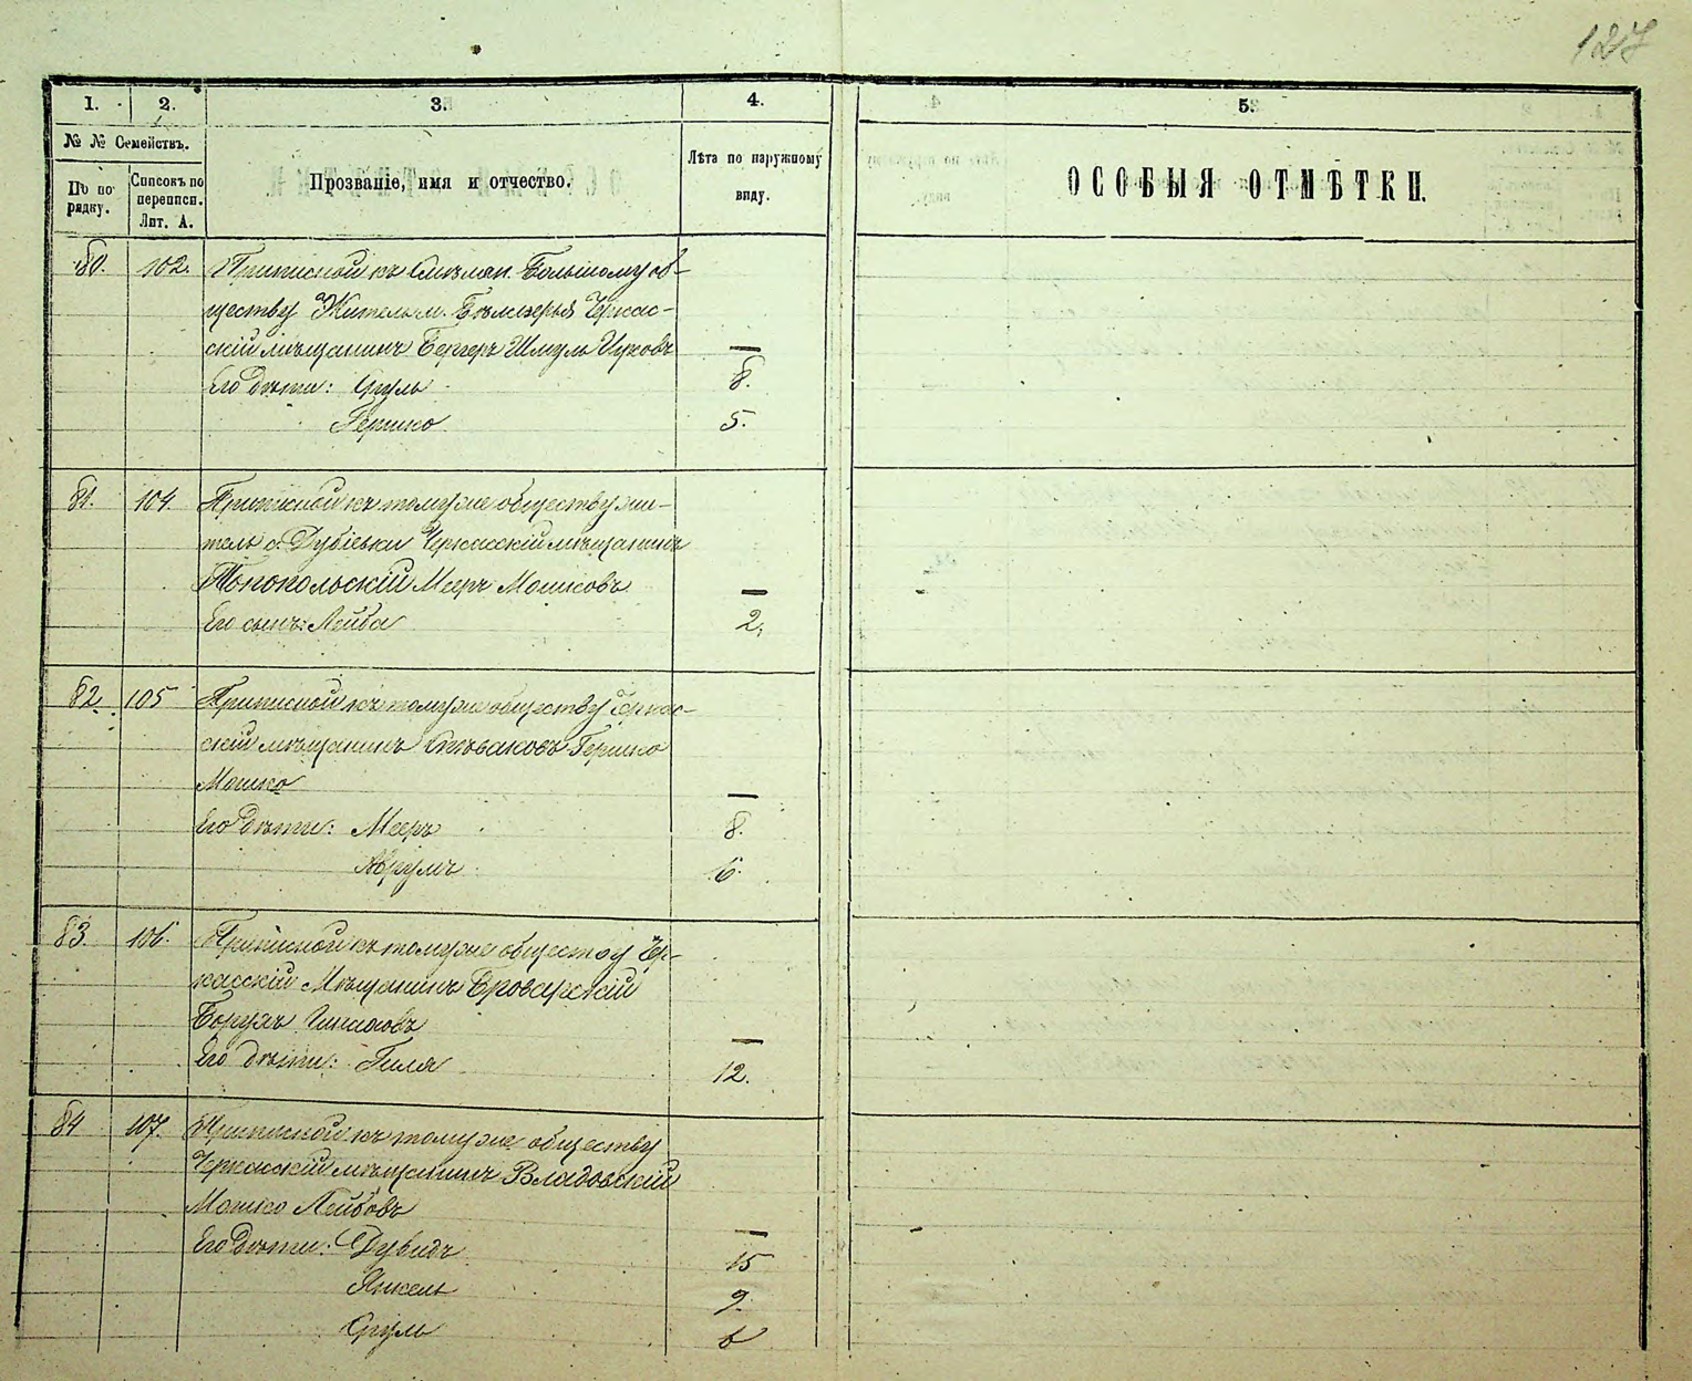 127
1. 2. 3. 4. 5.
№ № Семействъ.
По по-
рядку.
Списокъ по
переписи.
Лит. А.
Прозваніе, имя и отчество.
Лѣта по наружному
виду.
ОСОБЫЯ ОТМѢТКИ.
80. 102. Приписной къ Смѣлян. Большому об-
ществу Житель м. Бѣлозерья Черкас-
скій мѣщанинъ Бергеръ Шмуль Ицковъ —
Его дѣти: Сруль 8.
Гершко 5.
81. 104. Приписной къ тому же обществу жи-
тель с. Дубіевки Черкасскій мѣщанинъ
Тонопольскій Мееръ Мошковъ —
Его сынъ: Лейба 2.
82. 105 Приписной къ тому же обществу Черкас-
скій мѣщанинъ Спѣваковъ Гершко
Мошко —
Его дѣти: Мееръ 8.
Аврумъ 6.
83. 106. Приписной къ тому же обществу Чер-
касскій Мѣщанинъ Броварскій
Борухъ —
Его дѣти: Гиля 12.
84 107. Приписной къ тому же обществу
Черкасскій мѣщанинъ Владовскій
Мошко Лейбовъ —
Его дѣти: Дувидъ 15
Янкель 9.
Сруль 6